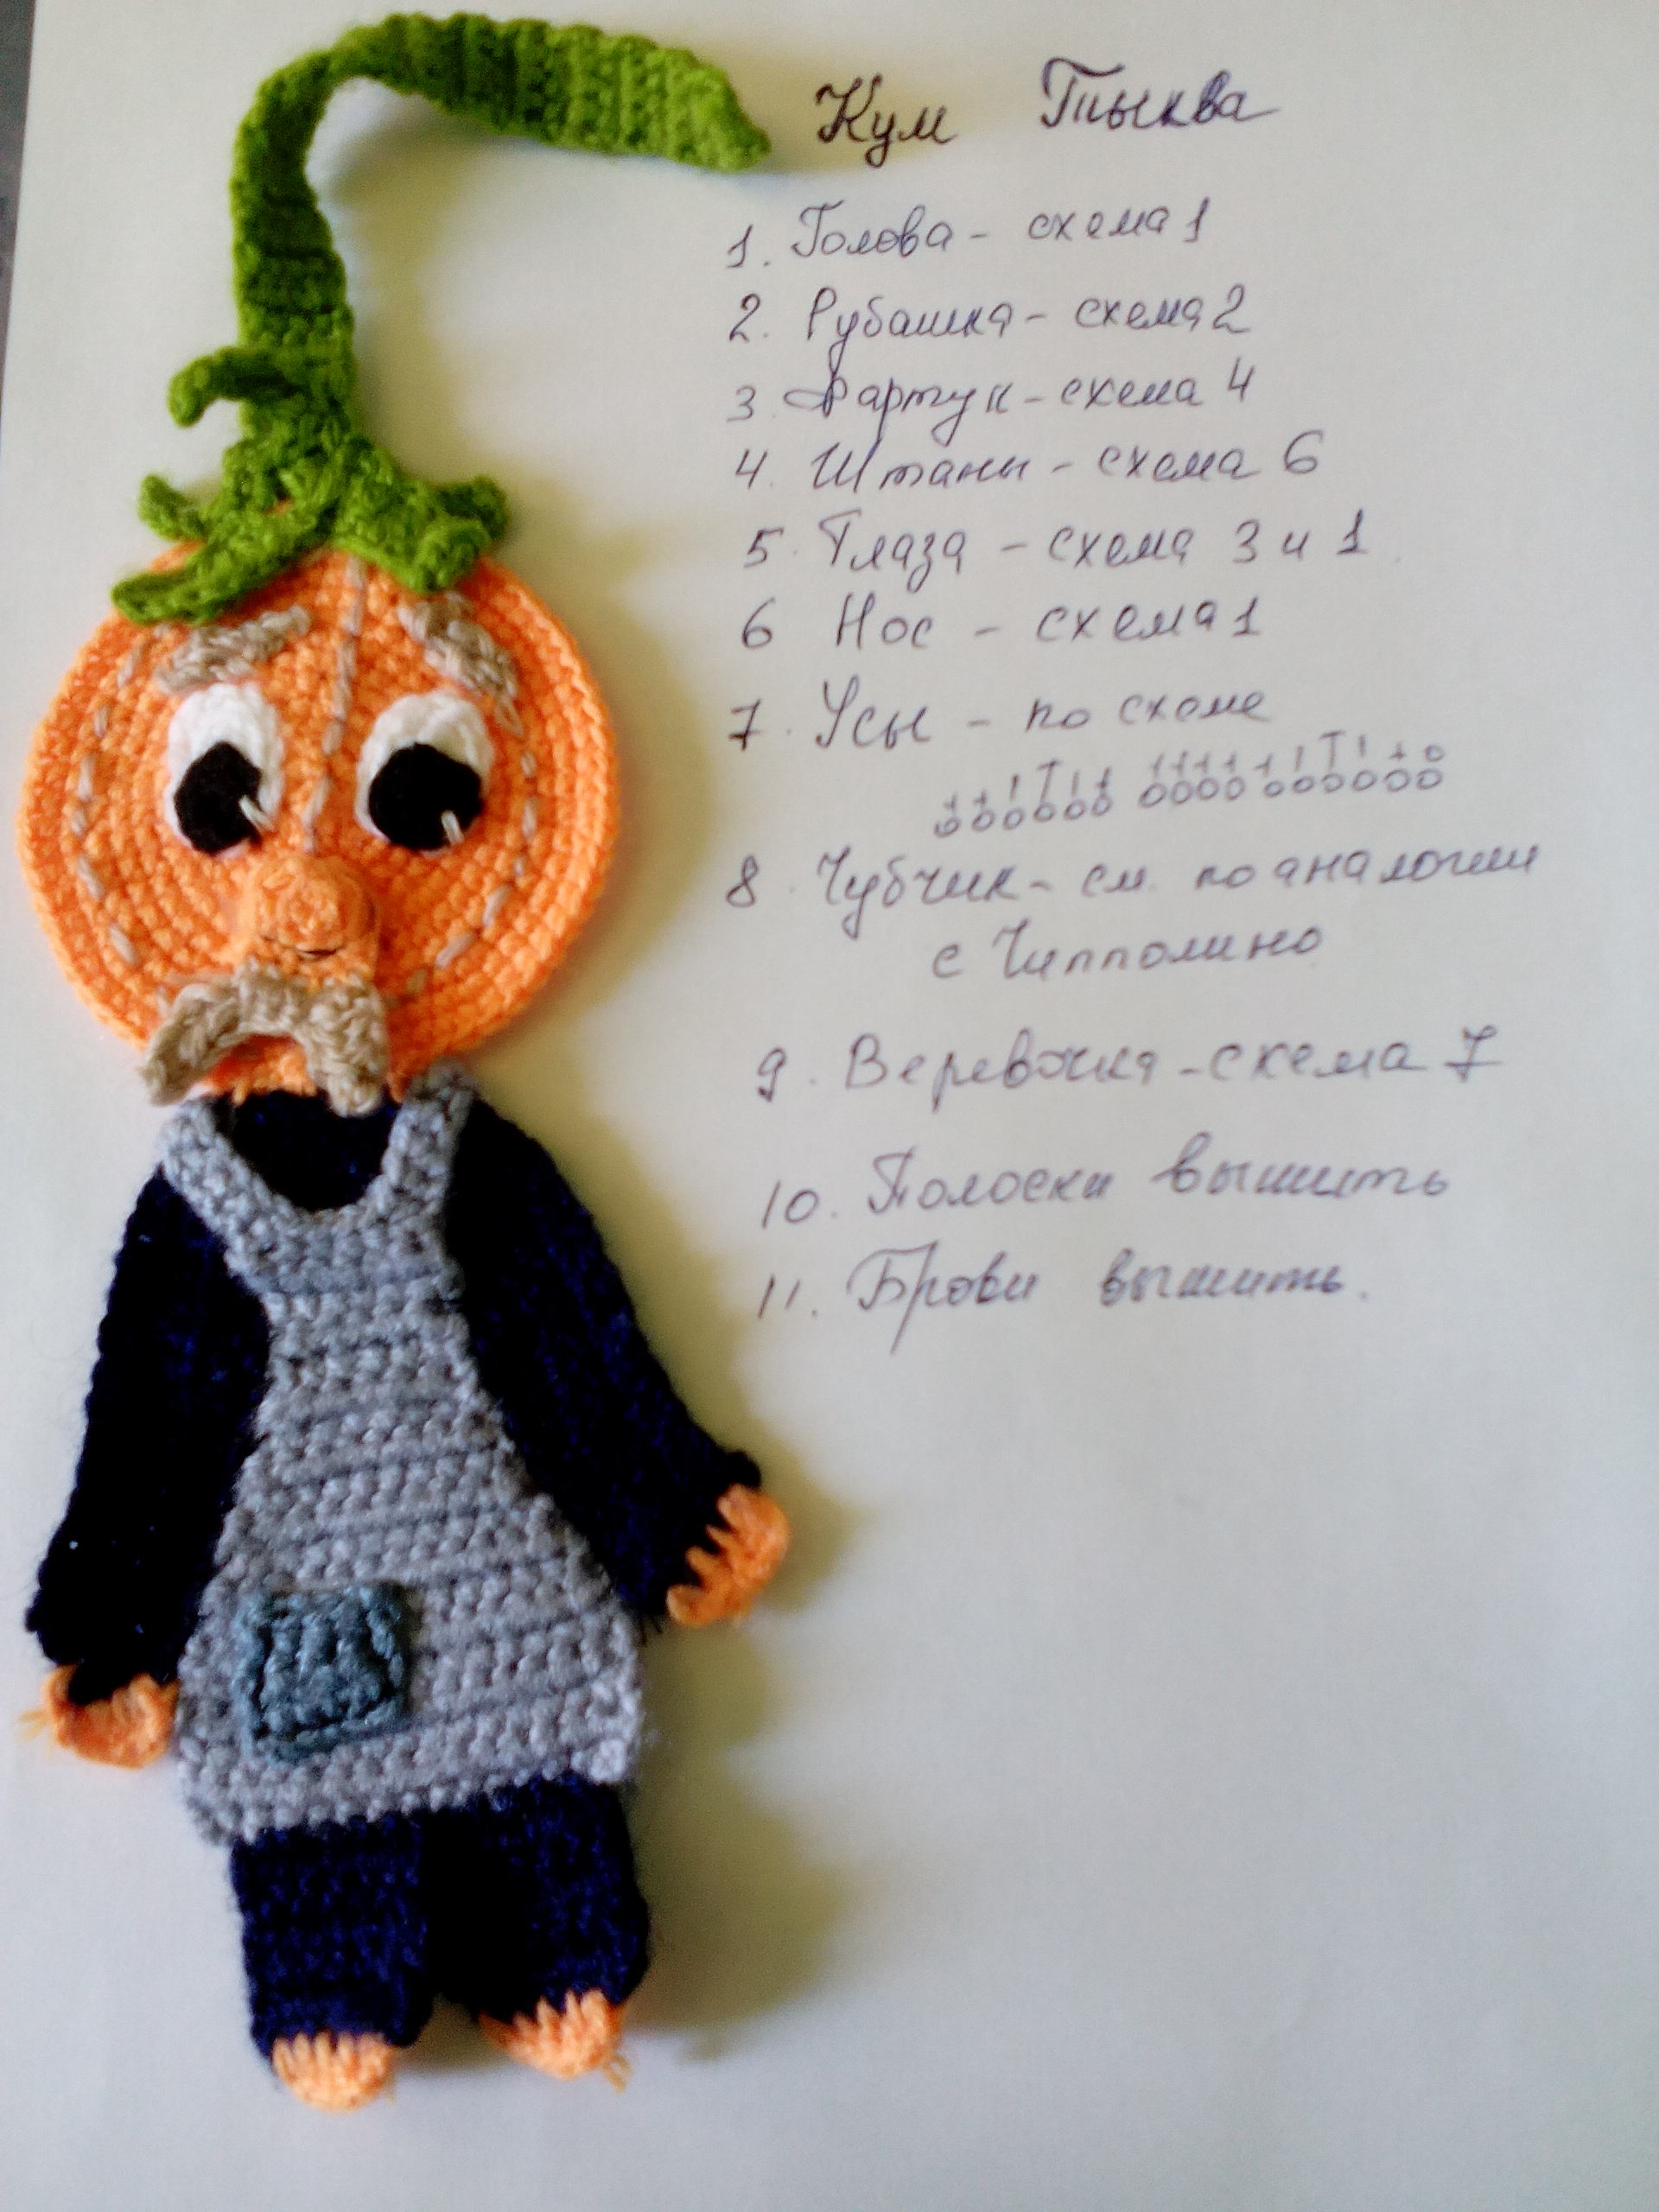 Кум Тыква
1. Голова - схема 1
2. Рубашка - схема 2
3 Фартук - схема 4
4 Штаны - схема 6
5. Глаза - схема 3 и 1
6 Нос - схема 1
7. Усы - по схеме
8. Чубчик - см. по аналогии
с Чипполино
9. Веревочка - схема 7
10. Полоски вышить
11. Брови вышить.